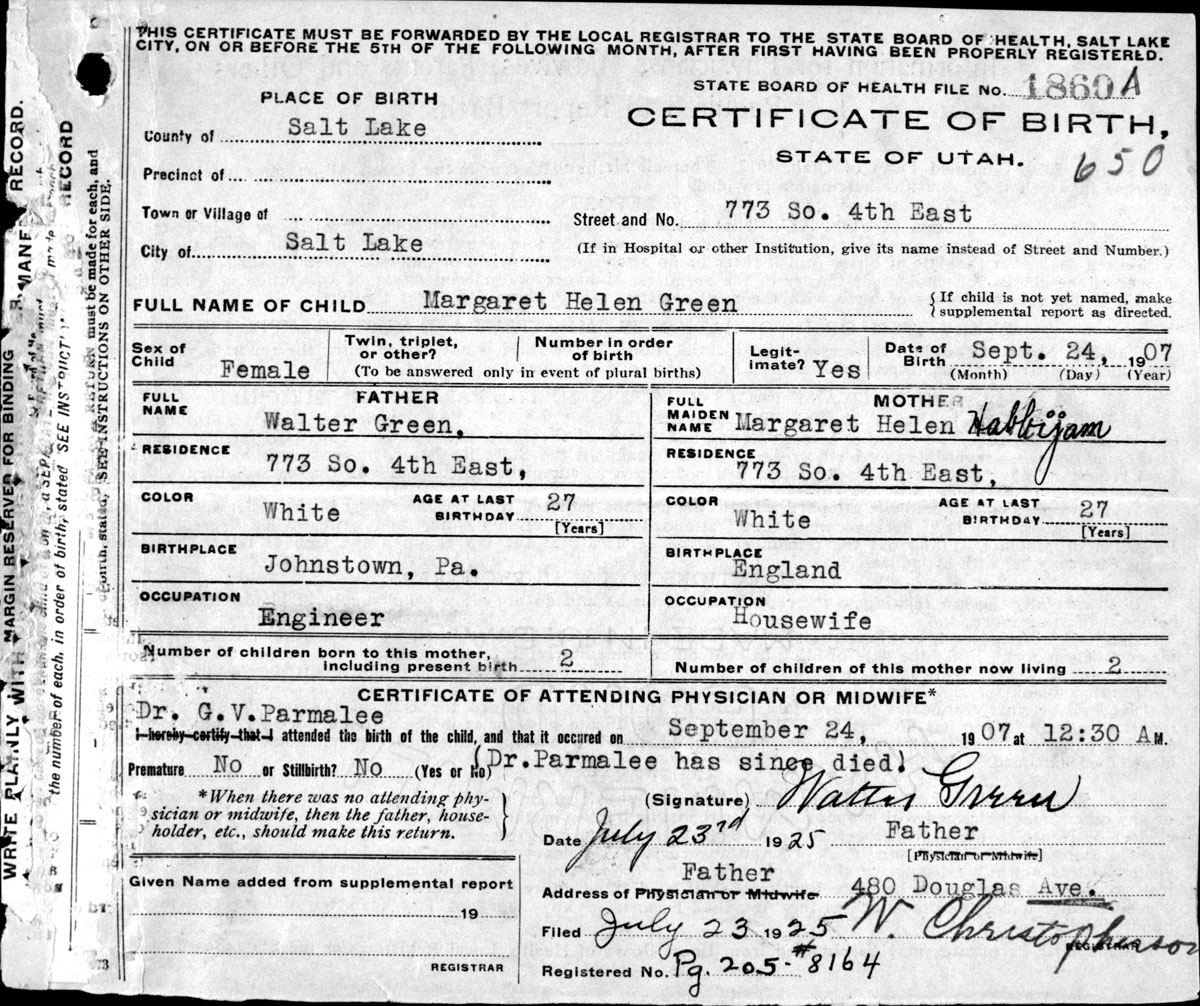 THIS CERTIFICATE MUST BE FORWARDED BY THE LOCAL REGISTRAR TO THE STATE BOARD OF HEALTH, SALT LAKE
CITY, ON OR BEFORE THE 5TH OF THE FOLLOWING MONTH, AFTER FIRST HAVING BEEN PROPERLY REGISTERED.
STATE BOARD OF HEALTH FILE No. 1860A
PLACE OF BIRTH
CERTIFICATE OF BIRTH,
County of Salt Lake
STATE OF UTAH.
650
Precinct of
Town or Village of
Street and No. 773 So. 4th East
City of Salt Lake
(If in Hospital or other Institution, give its name instead of Street and Number.)
FULL NAME OF CHILD Margaret Helen Green
{If child is not yet named, make
supplemental report as directed.
Sex of
Child Female
Twin, triplet,
or other?
Number in order
of birth
(To be answered only in event of plural births)
Legit-
imate? Yes
Date of
Birth Sept. 24, 1907
(Month) (Day) (Year)
FATHER
FULL
NAME
Walter Green,
RESIDENCE
773 So. 4th East,
COLOR
White
AGE AT LAST
BIRTHDAY 27
[Years]
BIRTHPLACE
Johnstown, Pa.
OCCUPATION
Engineer
MOTHER
FULL
MAIDEN
NAME Margaret Helen Habbijam
RESIDENCE
773 So. 4th East,
COLOR
White
AGE AT LAST
BIRTHDAY 27
[Years]
BIRTHPLACE
England
OCCUPATION
Housewife
Number of children born to this mother,
including present birth 2
Number of children of this mother now living 2
CERTIFICATE OF ATTENDING PHYSICIAN OR MIDWIFE*
Dr. G.V.Parmalee
I hereby certify that I attended the birth of the child, and that it occured on September 24, 1907 at 12:30 A M.
Premature No or Stillbirth? No (Yes or No) (Dr.Parmalee has since died)
*When there was no attending phy-
sician or midwife, then the father, house-
holder, etc., should make this return.
(Signature) Walter Green
Date July 23rd 1925 Father
[Physician or Midwife]
Father
Address of Physician or Midwife 480 Douglas Ave.
Given Name added from supplemental report
19
REGISTRAR
Filed July 23 1925 W. Christopherson
REGISTRAR
Registered No. Pg. 205-#8164
WRITE PLAINLY WITH
MARGIN RESERVED FOR BINDING
RECORD.
the number of each, in order of birth, stated SEE INSTRUCTI
RECORD
RETURN must be made for each, and
SEE INSTRUCTIONS ON OTHER SIDE.